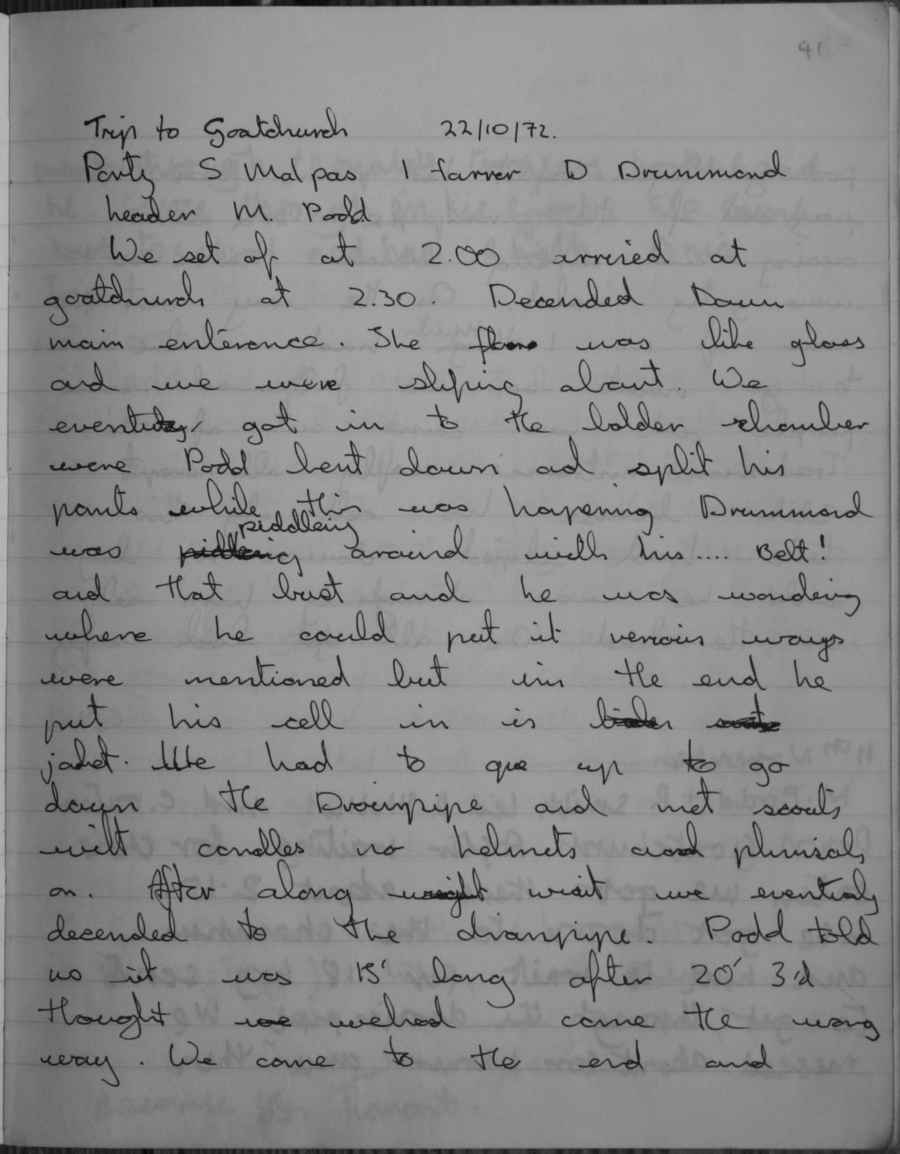 41
Trip to Goatchurch 22/10/72.
Party S Malpas I farrer D Drummond
leader M. Podd
We set of at 2.00 arrived at
goatchurch at 2.30. Decended Down
main enterence. The was like glass
and we were sliping about. We
eventualy got in to the bolder chamber
were Podd bent down ad split his
pants while this was hapening Drummond
was piddleing around with his .... Belt!
and that bust and he was wondering
where he could put it verious ways
were mentioned but in the end he
put his cell in is
jaket. We had to go up to go
down the Drainpipe and met scouts
with candles no helmets and plimsols
on. After along wait we eventialy
decended to the drainpipe. Podd told
us it was 15' long after 20' I'd
thought we had come the wrong
way. We came to the end and